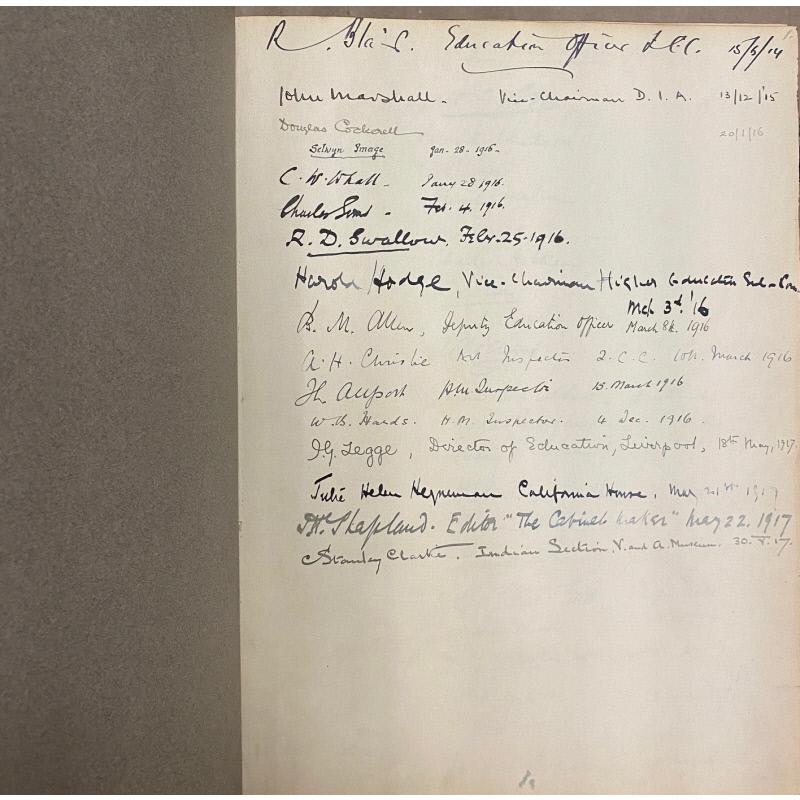 R. Blair. Education Officer L.C.C. 15/5/14
John Marshall. Vice-Chairman D.I.A. 13/12/'15
Douglas Cockerell 20/1/16
Selwyn Image Jan-28-1916-
C.W. Whall. Jany 28 1916.
Charles Sims - Feb. 4. 1916.
R.D. Swallow. Feb. 25-1916.
Harold Hodge, Vice-Chairman Higher Education Sub-Com.
Mch 3rd. '16
B. M. Allen, Deputy Education Officer March 8th. 1916
A. H. Christie Art Inspector L.C.C. 10th. March 1916
Allport H.M. Inspector 15. March 1916
W.B. Hards. H.M. Inspector. 4 Dec. 1916.
J.G. Legge, Director of Education, Liverpool, 18th May, 1917.
Julie Helen Heyneman California House, May 21st 1917
Shapland. Editor "The Cabinet Maker" May 22. 1917
Stanley Clarke. Indian Section, V. and A. Museum. 30. V. 17.